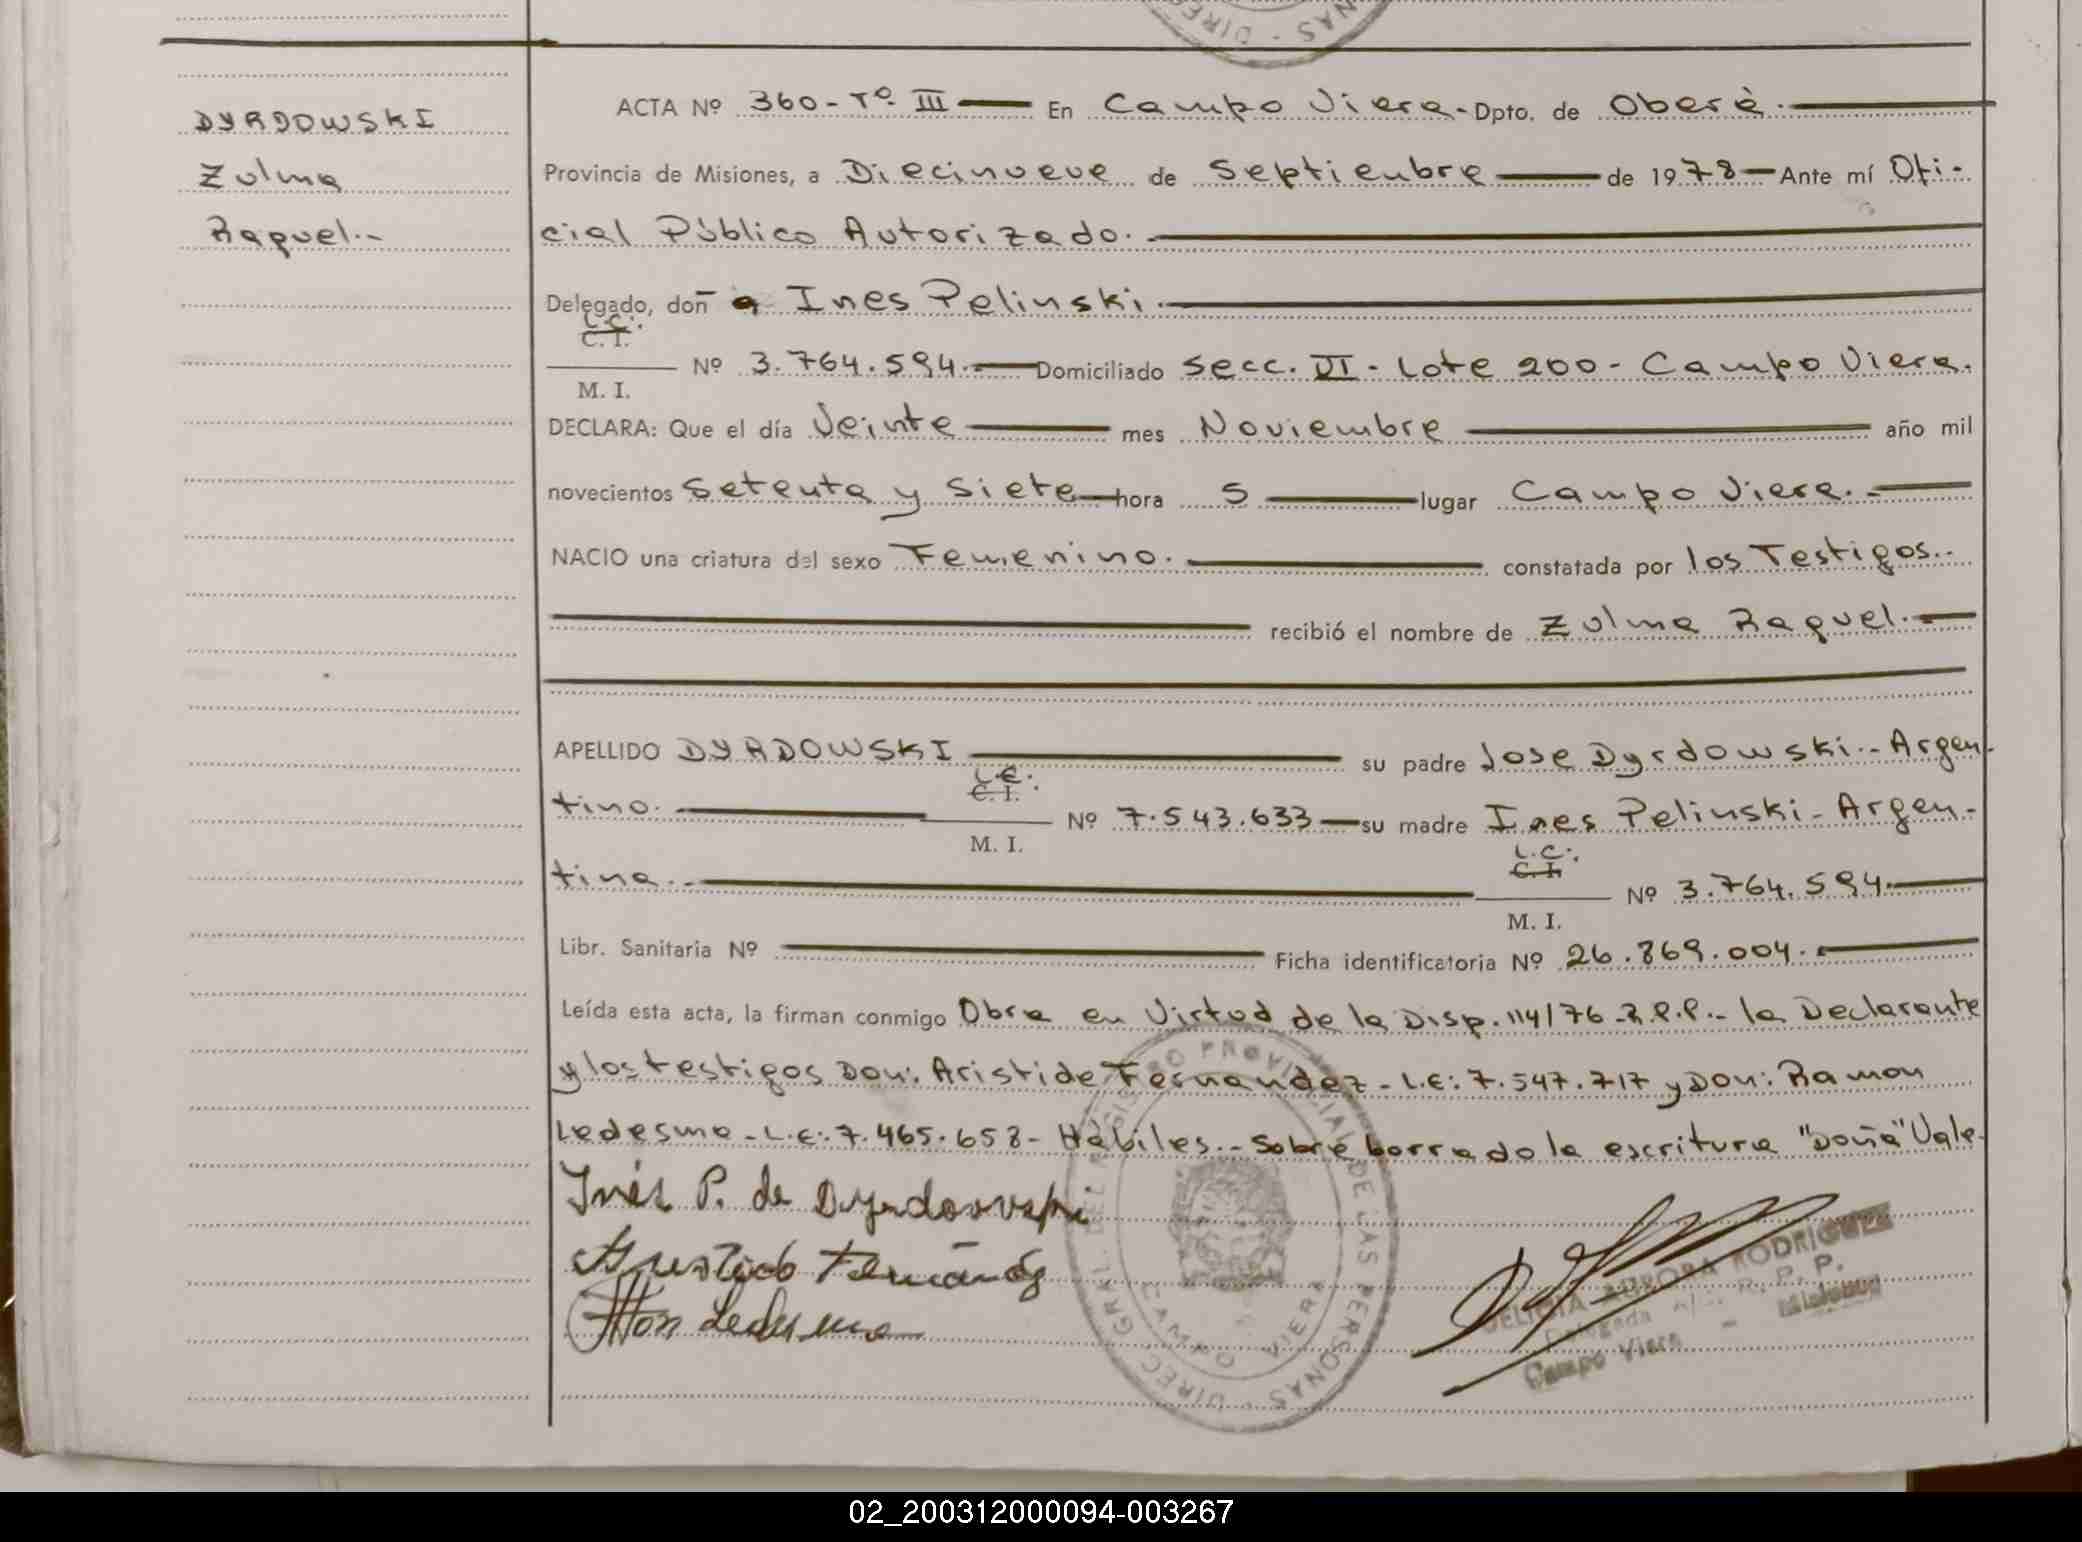 NAS - DIRE
DYRDOWSKI
Zulma
Raquel.-
ACTA Nº 360-Tº III En Campo Viera - Dpto. de Oberà.
Provincia de Misiones, a Diecinueve de Septiembre de 1978 Ante mí Ofi-
cial Público Autorizado.
Delegado, doñ a Ines Pelinski.
L.C.
C. I.
M. I.
Nº 3.764.594. Domiciliado Secc. VI - Lote 200 - Campo Viera.
DECLARA: Que el día Veinte mes Noviembre año mil
novecientos Setenta y Siete hora 5 lugar Campo Viera.
NACIO una criatura del sexo Femenino. constatada por los Testigos..
recibió el nombre de Zulma Raquel.
APELLIDO DYRDOWSKI su padre Jose Dyrdowski.- Argen-
L.E.
C. I.
tino. Nº 7.543.633 su madre Ines Pelinski - Argen-
M. I.
L.C.
C. I.
tina.- Nº 3.764.594
M. I.
Libr. Sanitaria Nº Ficha identificatoria Nº 26.869.004.
Leída esta acta, la firman conmigo Obra en Virtud de la Disp. 114/76 R.P.P.- la Declarante
y los testigos Don: Aristide Fernandez - L.E: 7.547.717 y Don: Ramon
Ledesma - L.E: 7.465.658 - Hàbiles.- Sobre borrado la escritura "Doña" Vale-
Inés P. de Dyrdowski
Fernández
Ledesma
DIREC. GRAL. DEL REGISTRO PROVINCIAL DE LAS PERSONAS
CAMPO VIERA
DELICIA AURORA RODRIGUEZ
Delegada R. P. P.
Campo Viera - Misiones
02_200312000094-003267